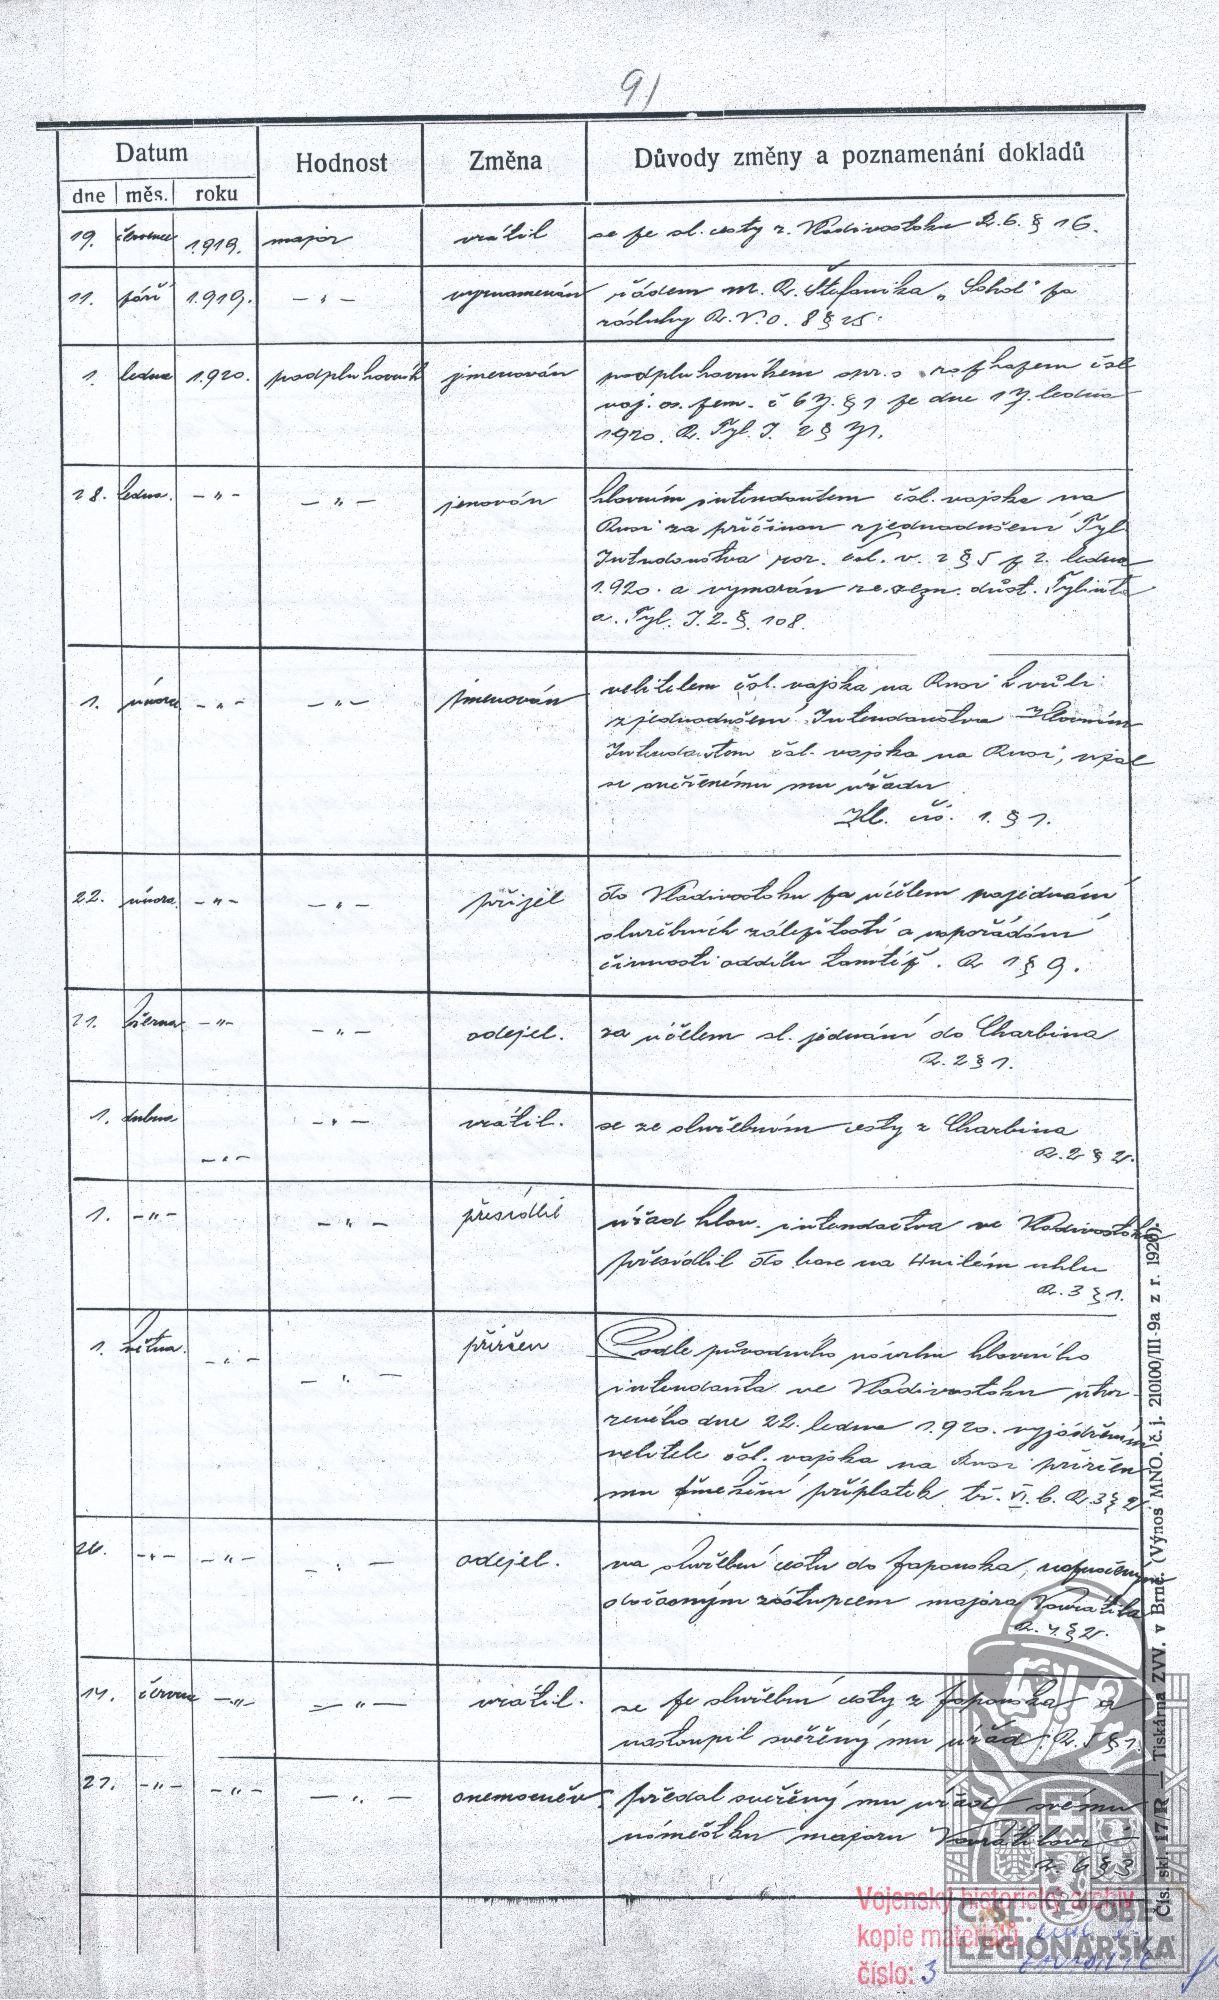 91
Datum Hodnost Změna Důvody změny a poznamenání dokladů
dne měs. roku
19. července 1919. major vrátil se ze sl. cesty z Vladivostoku R. 6. § 16.
11. září 1919. — „ — vyznamenán řádem M. R. Štefanika „Sokol" za
zásluhy R. V. O. 8 § 25.
1. ledna 1920. podplukovník jmenován podplukovníkem spr. s rozkazem čsl.
voj. os. zem. č 67. § 1 ze dne 17. ledna
1920. R. Tyl. I. 2 § 71.
28. ledna. — „ — — „ — jenován hlavním intendantem čsl. vojska na
Rusi za příčinou zjednodušení Tyl.
Intendanstva roz. čsl. v. 2 § 5 z 2. ledna
1920. a vymazán ze sezn. důst.
a. Tyl. I. 2. § 108.
1. února — „ — — „ — jmenován velitelem čsl. vojska na Rusi k vůli
zjednodušení Intendanstva Hlavním
Intendantem čsl. vojska na Rusi, ujal
se svěřenému mu úřadu
1. § 1.
22. února — „ — — „ — přijel do Vladivostoku za účelem projednání
služebních záležitostí a uspořádání
činnosti oddílu tamtéž. R 1 § 9.
21. března — „ — — „ — odejel. za účelem sl. jednání do Charbina
R. 2 § 1.
1. dubna — „ — — „ — vrátil. se ze služebním cesty z Charbina
R. 2 § 2.
1. — „ — — „ — přesídlil úřad hlav. intendastva ve Vladivostoku
přesídlil do base na Hnilém uhlu
R. 3 § 1.
1. května. — „ — — „ — přiřčen Podle původního návrhu hlavního
intendanta ve Vladivostoku utvo-
řeného dne 22. ledna 1920. vyjádřením
velitele čsl. vojska na Rusi přiřčen
mu příplatek tř. VI. b. R. 3 § 2.
26. — „ — — „ — — „ — odejel. na služební cestu do Japonska,
dočasným zástupcem majora Vavřatila
R. 4. § 2.
14. června — „ — — „ — vrátil. se ze služební cesty z Japonska a
nastoupil svěřený mu úřad. R. 5 § 1.
27. — „ — — „ — — „ — onemocněv. předal svěřený mu úřad svému
náměstku majoru
R. 6 § 3
Čís. skl. 17/R — Tiskárna ZVV. v Brně. (Výnos MNO. č. j. 210100/III-9a z r. 1926).
Vojenský historický archiv
kopie materiálů
číslo: 3
ČSL. OBEC
LEGIONÁŘSKÁ